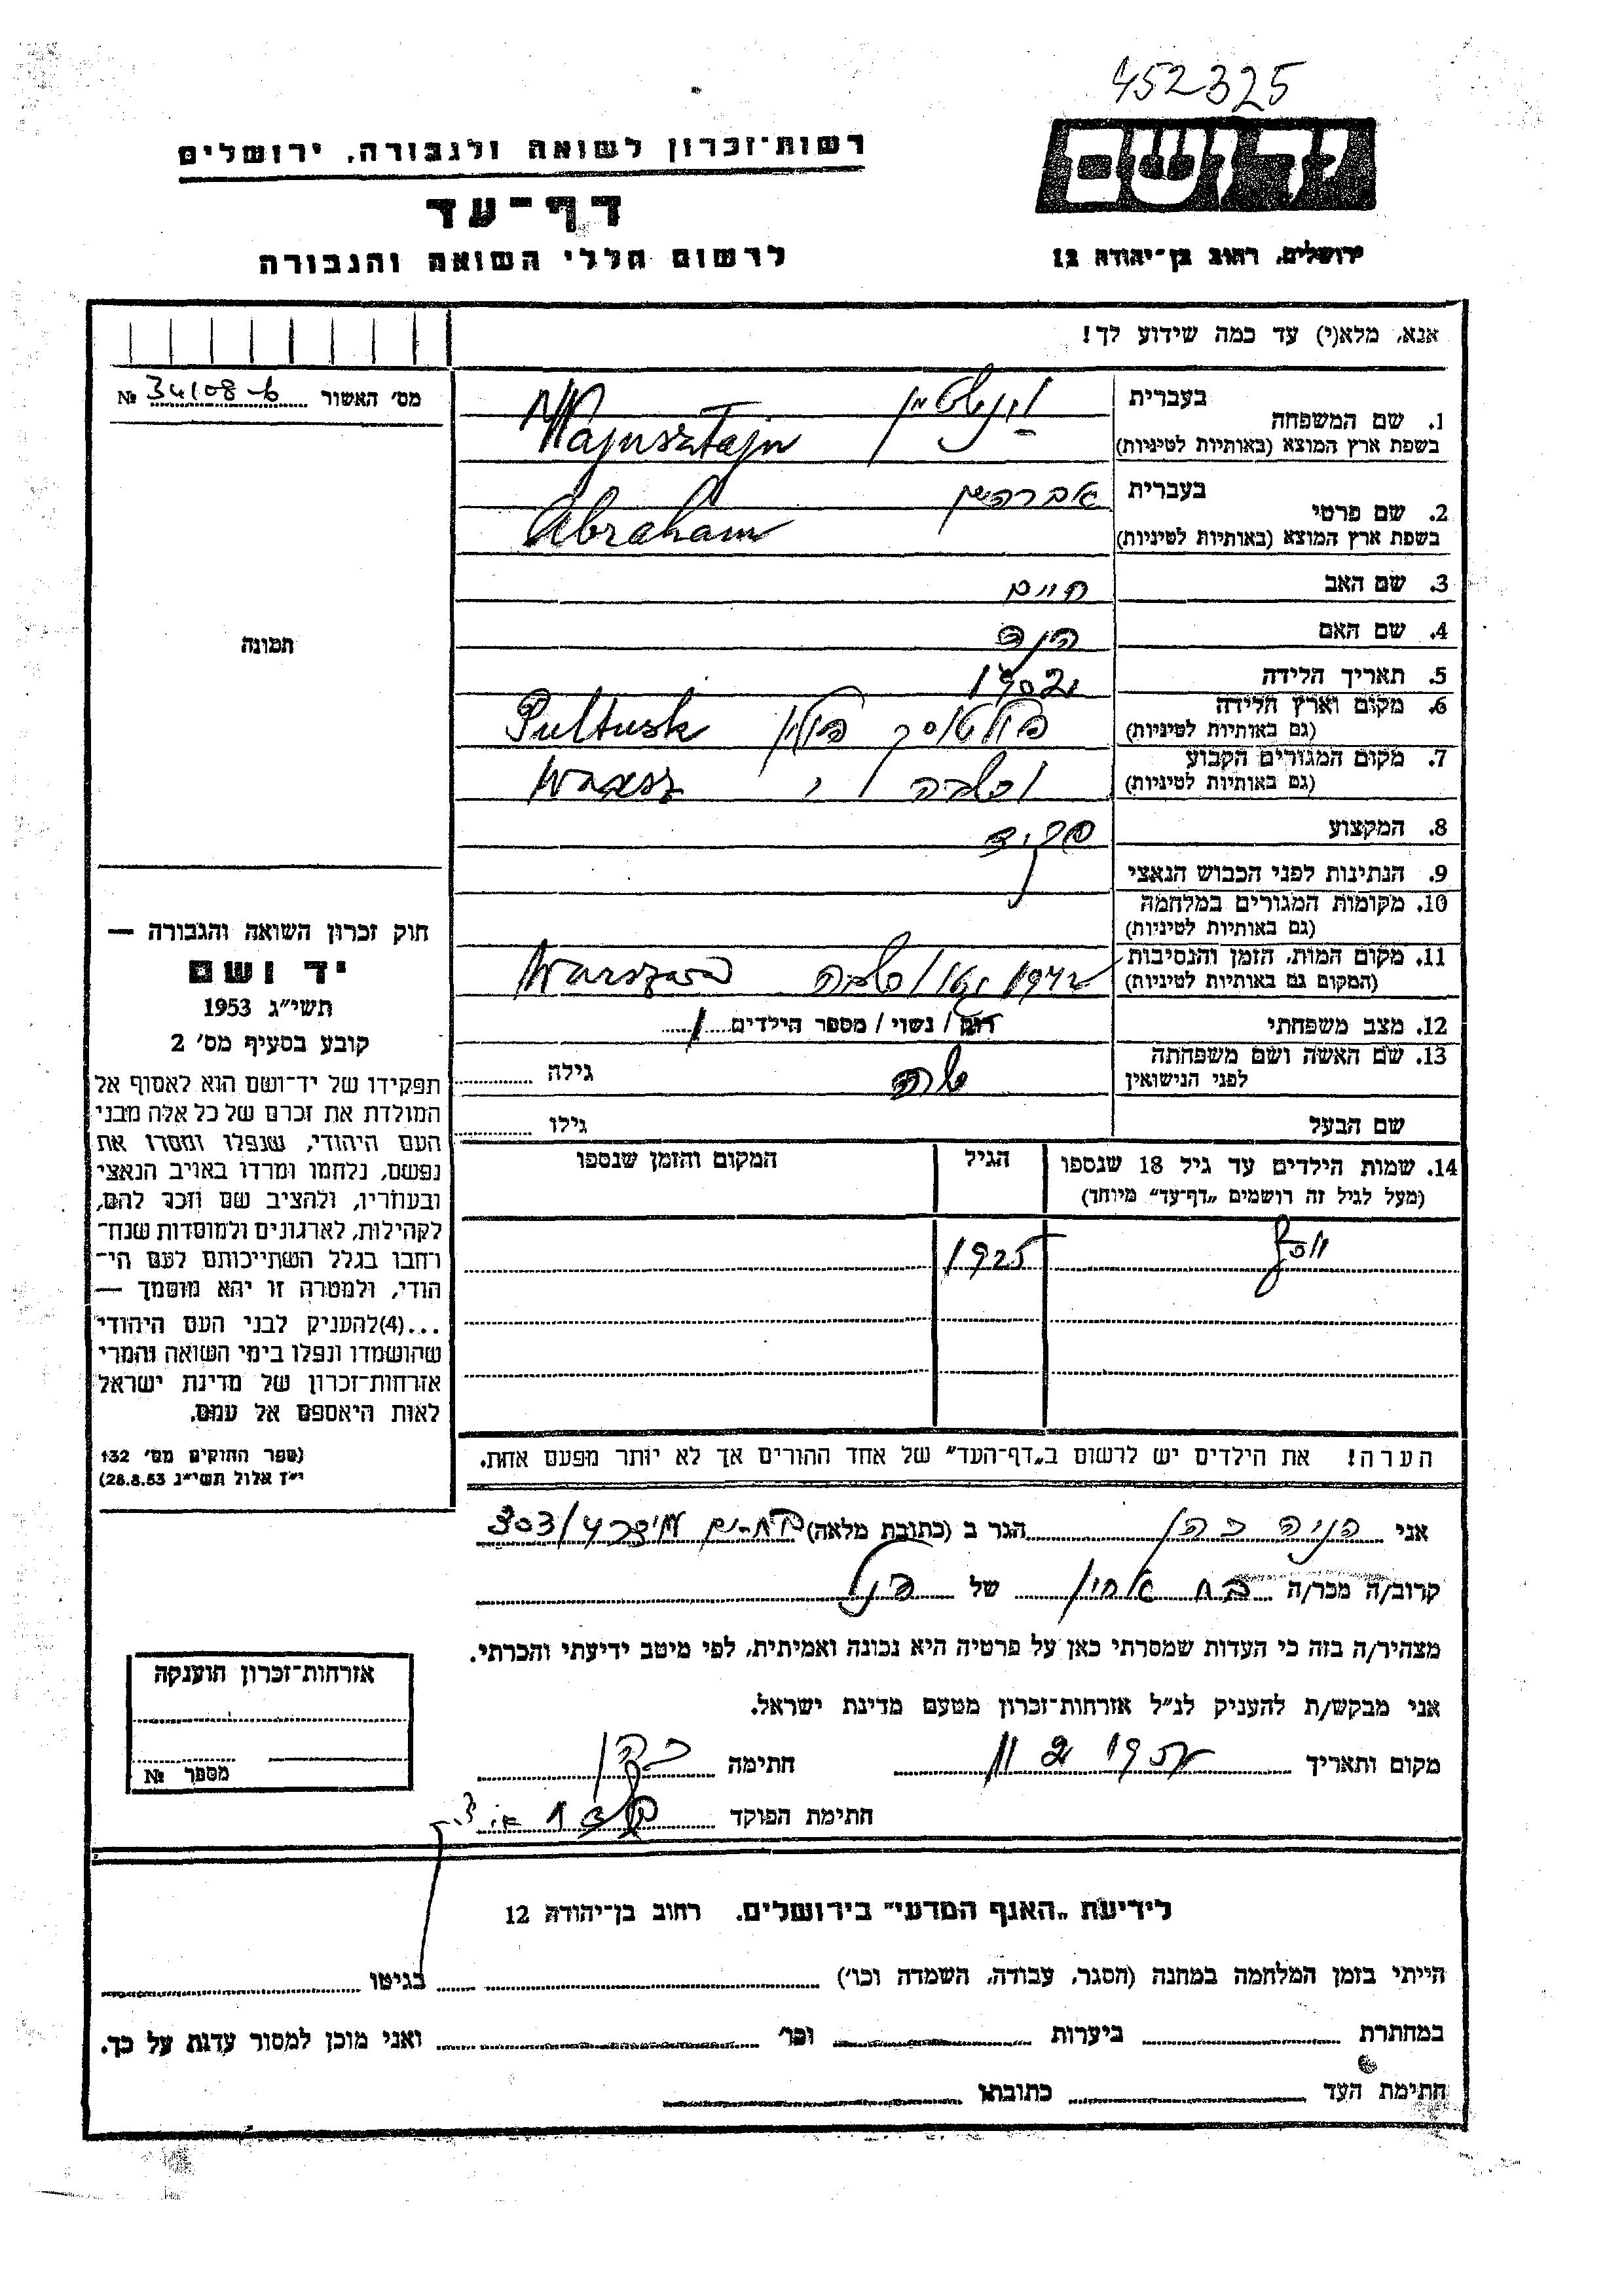 452325
יד ושם
רשות־זכרון לשואה ולגבורה, ירושלים
דף־עד
לרשום חללי השואה והגבורה
ירושלים, רחוב בן־יהודה 12
אנא, מלא(י) עד כמה שידוע לך!
מס' האשור 34108-ב №
תמונה
חוק זכרון השואה והגבורה —
יד ושם
תשי"ג 1953
קובע בסעיף מס' 2
תפקידו של יד־ושם הוא לאסוף אל
המולדת את זכרם של כל אלה מבני
העם היהודי, שנפלו ומסרו את
נפשם, נלחמו ומרדו באויב הנאצי
ובעוזריו, ולהציב שם וזכר להם,
לקהילות, לארגונים ולמוסדות שנח־
רחבו בגלל השתייכותם לעם הי־
הודי, ולמטרה זו יהא מוסמך —
...(4)להעניק לבני העם היהודי
שהושמדו ונפלו בימי השואה והמרי
אזרחות־זכרון של מדינת ישראל
לאות היאספם אל עמם.
(ספר החוקים מס' 132
י"ז אלול תשי"ג 28.8.53)
1. שם המשפחה בעברית
בשפת ארץ המוצא (באותיות לטיניות) Wajnsztajn
2. שם פרטי בעברית אברהם
בשפת ארץ המוצא (באותיות לטיניות) Abraham
3. שם האב חיים
4. שם האם הינדה
5. תאריך הלידה 1902
6. מקום וארץ הלידה פולטוסק פולין Pultusk
(גם באותיות לטיניות)
7. מקום המגורים הקבוע
(גם באותיות לטיניות)
8. המקצוע פקיד
9. הנתינות לפני הכבוש הנאצי
10. מקומות המגורים במלחמה
(גם באותיות לטיניות)
11. מקום המות, הזמן והנסיבות 1942 גטו ורשה Warszawa
(המקום גם באותיות לטיניות)
12. מצב משפחתי רווק / נשוי / מספר הילדים 1
13. שם האשה ושם משפחתה שרה גילה
לפני הנישואין
שם הבעל גילו
14. שמות הילדים עד גיל 18 שנספו הגיל המקום והזמן שנספו
(מעל לגיל זה רושמים „דף־עד" מיוחד)
יוסף 1925
הערה! את הילדים יש לרשום ב„דף־העד" של אחד ההורים אך לא יותר מפעם אחת.
אני הניה כהן הגר ב (כתובת מלאה) בת-ים 303/4
קרוב/ה מכר/ה בת אחין של הנ"ל
מצהיר/ה בזה כי העדות שמסרתי כאן על פרטיה היא נכונה ואמיתית, לפי מיטב ידיעתי והכרתי.
אני מבקש/ת להעניק לנ"ל אזרחות־זכרון מטעם מדינת ישראל.
מקום ותאריך חתימה כהן
חתימת הפוקד
אזרחות־זכרון הוענקה
מספר №
לידיעת „האגף המדעי" בירושלים. רחוב בן־יהודה 12
הייתי בזמן המלחמה במחנה (הסגר, עבודה, השמדה וכו') בגיטו
במחתרת ביערות וכו' ואני מוכן למסור עדות על כך.
חתימת העד כתובתו